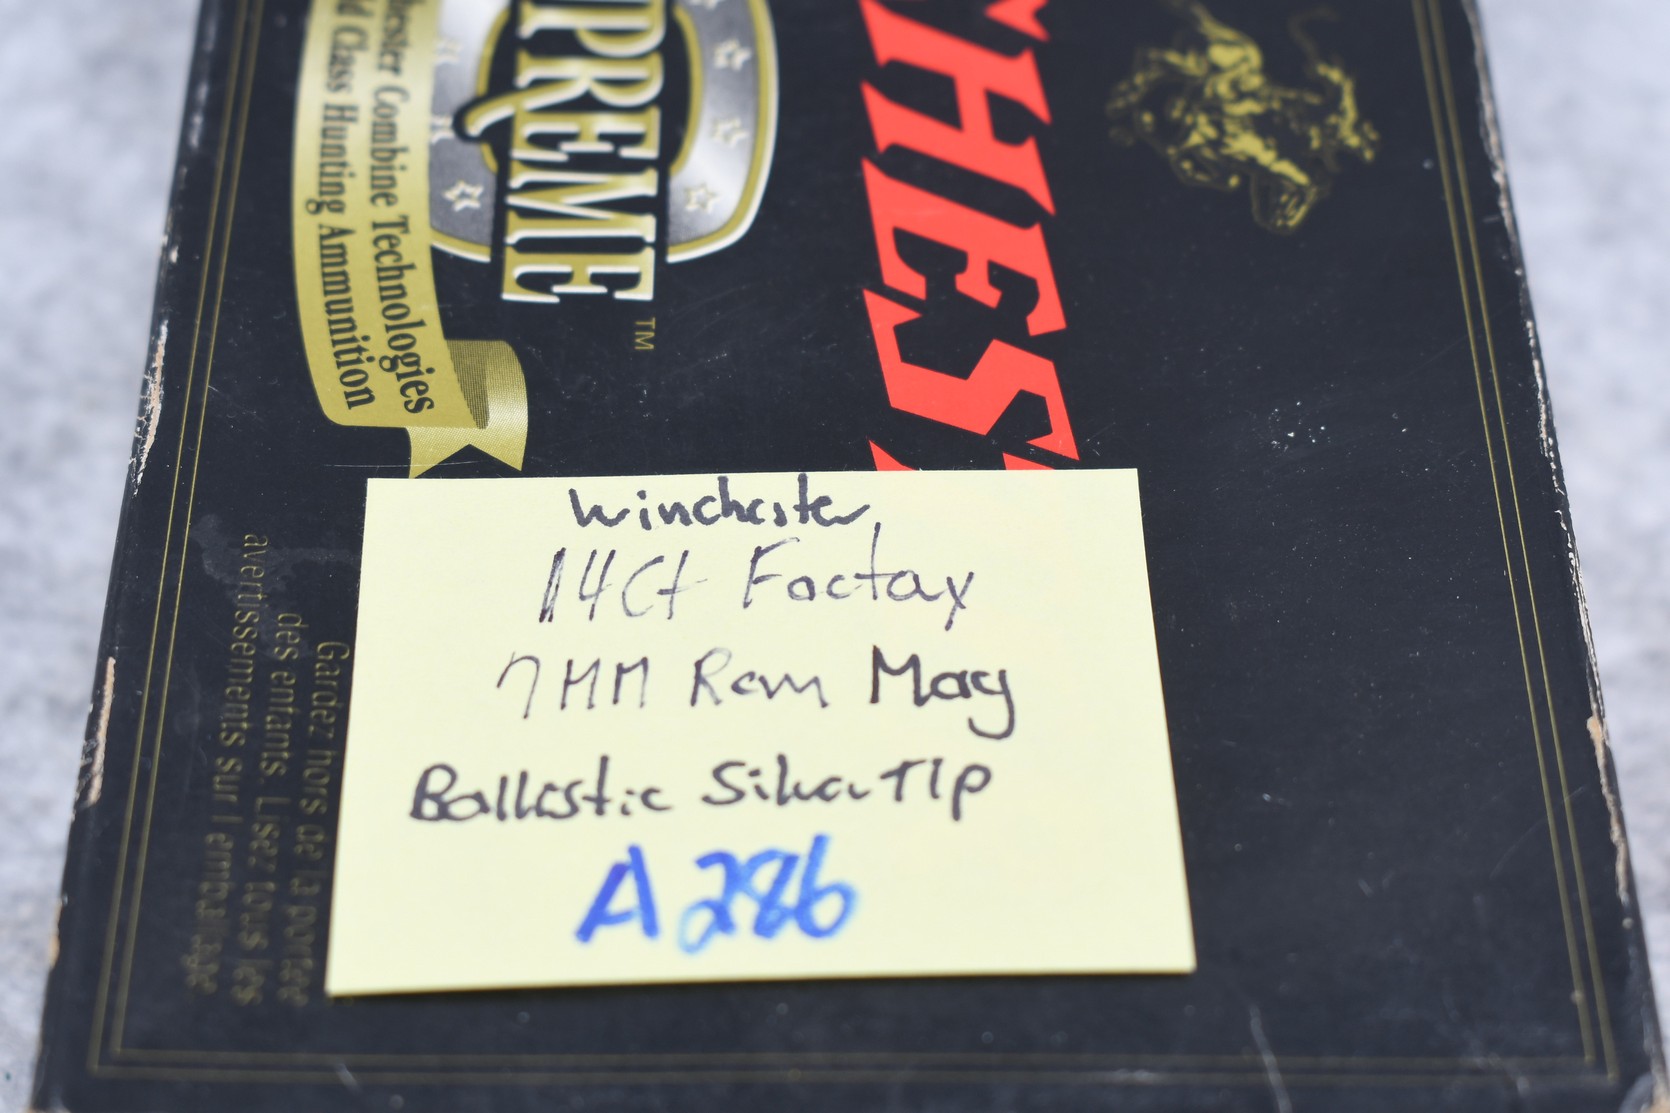 PREME
TM
hester Combine Technologies
d Class Hunting Ammunition
CHEST
Gardez hors de la portée
des enfants. Lisez tous les
avertissements sur l'emballage.
Winchester
14Ct Factory
7MM Rem Mag
Ballistic SilverTIp
A286